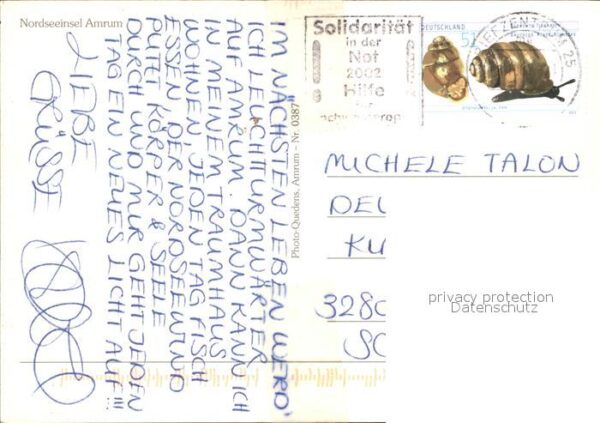 Nordseeinsel Amrum
IM NÄCHSTEN LEBEN WERD'
ICH LEUCHTTURMWÄRTER
AUF AMRUM. DANN KANN ICH
IN MEINEM TRAUMHAUS
WOHNEN, JEDEN TAG FISCH
ESSEN, DER NORDSEEWIND
PUTET KÖRPER & SEELE
DURCH UND MIR GEHT JEDEN
TAG EIN NEUES LICHT AUF!!!
LIEBE
GRÜSSE
Photo-Quedens, Amrum - Nr. 0387
Solidarität
in der
Not
2002
Hilfe
DEUTSCHLAND
51
MICHELE TALON
DEL
KU
3280
SC
privacy protection
Datenschutz